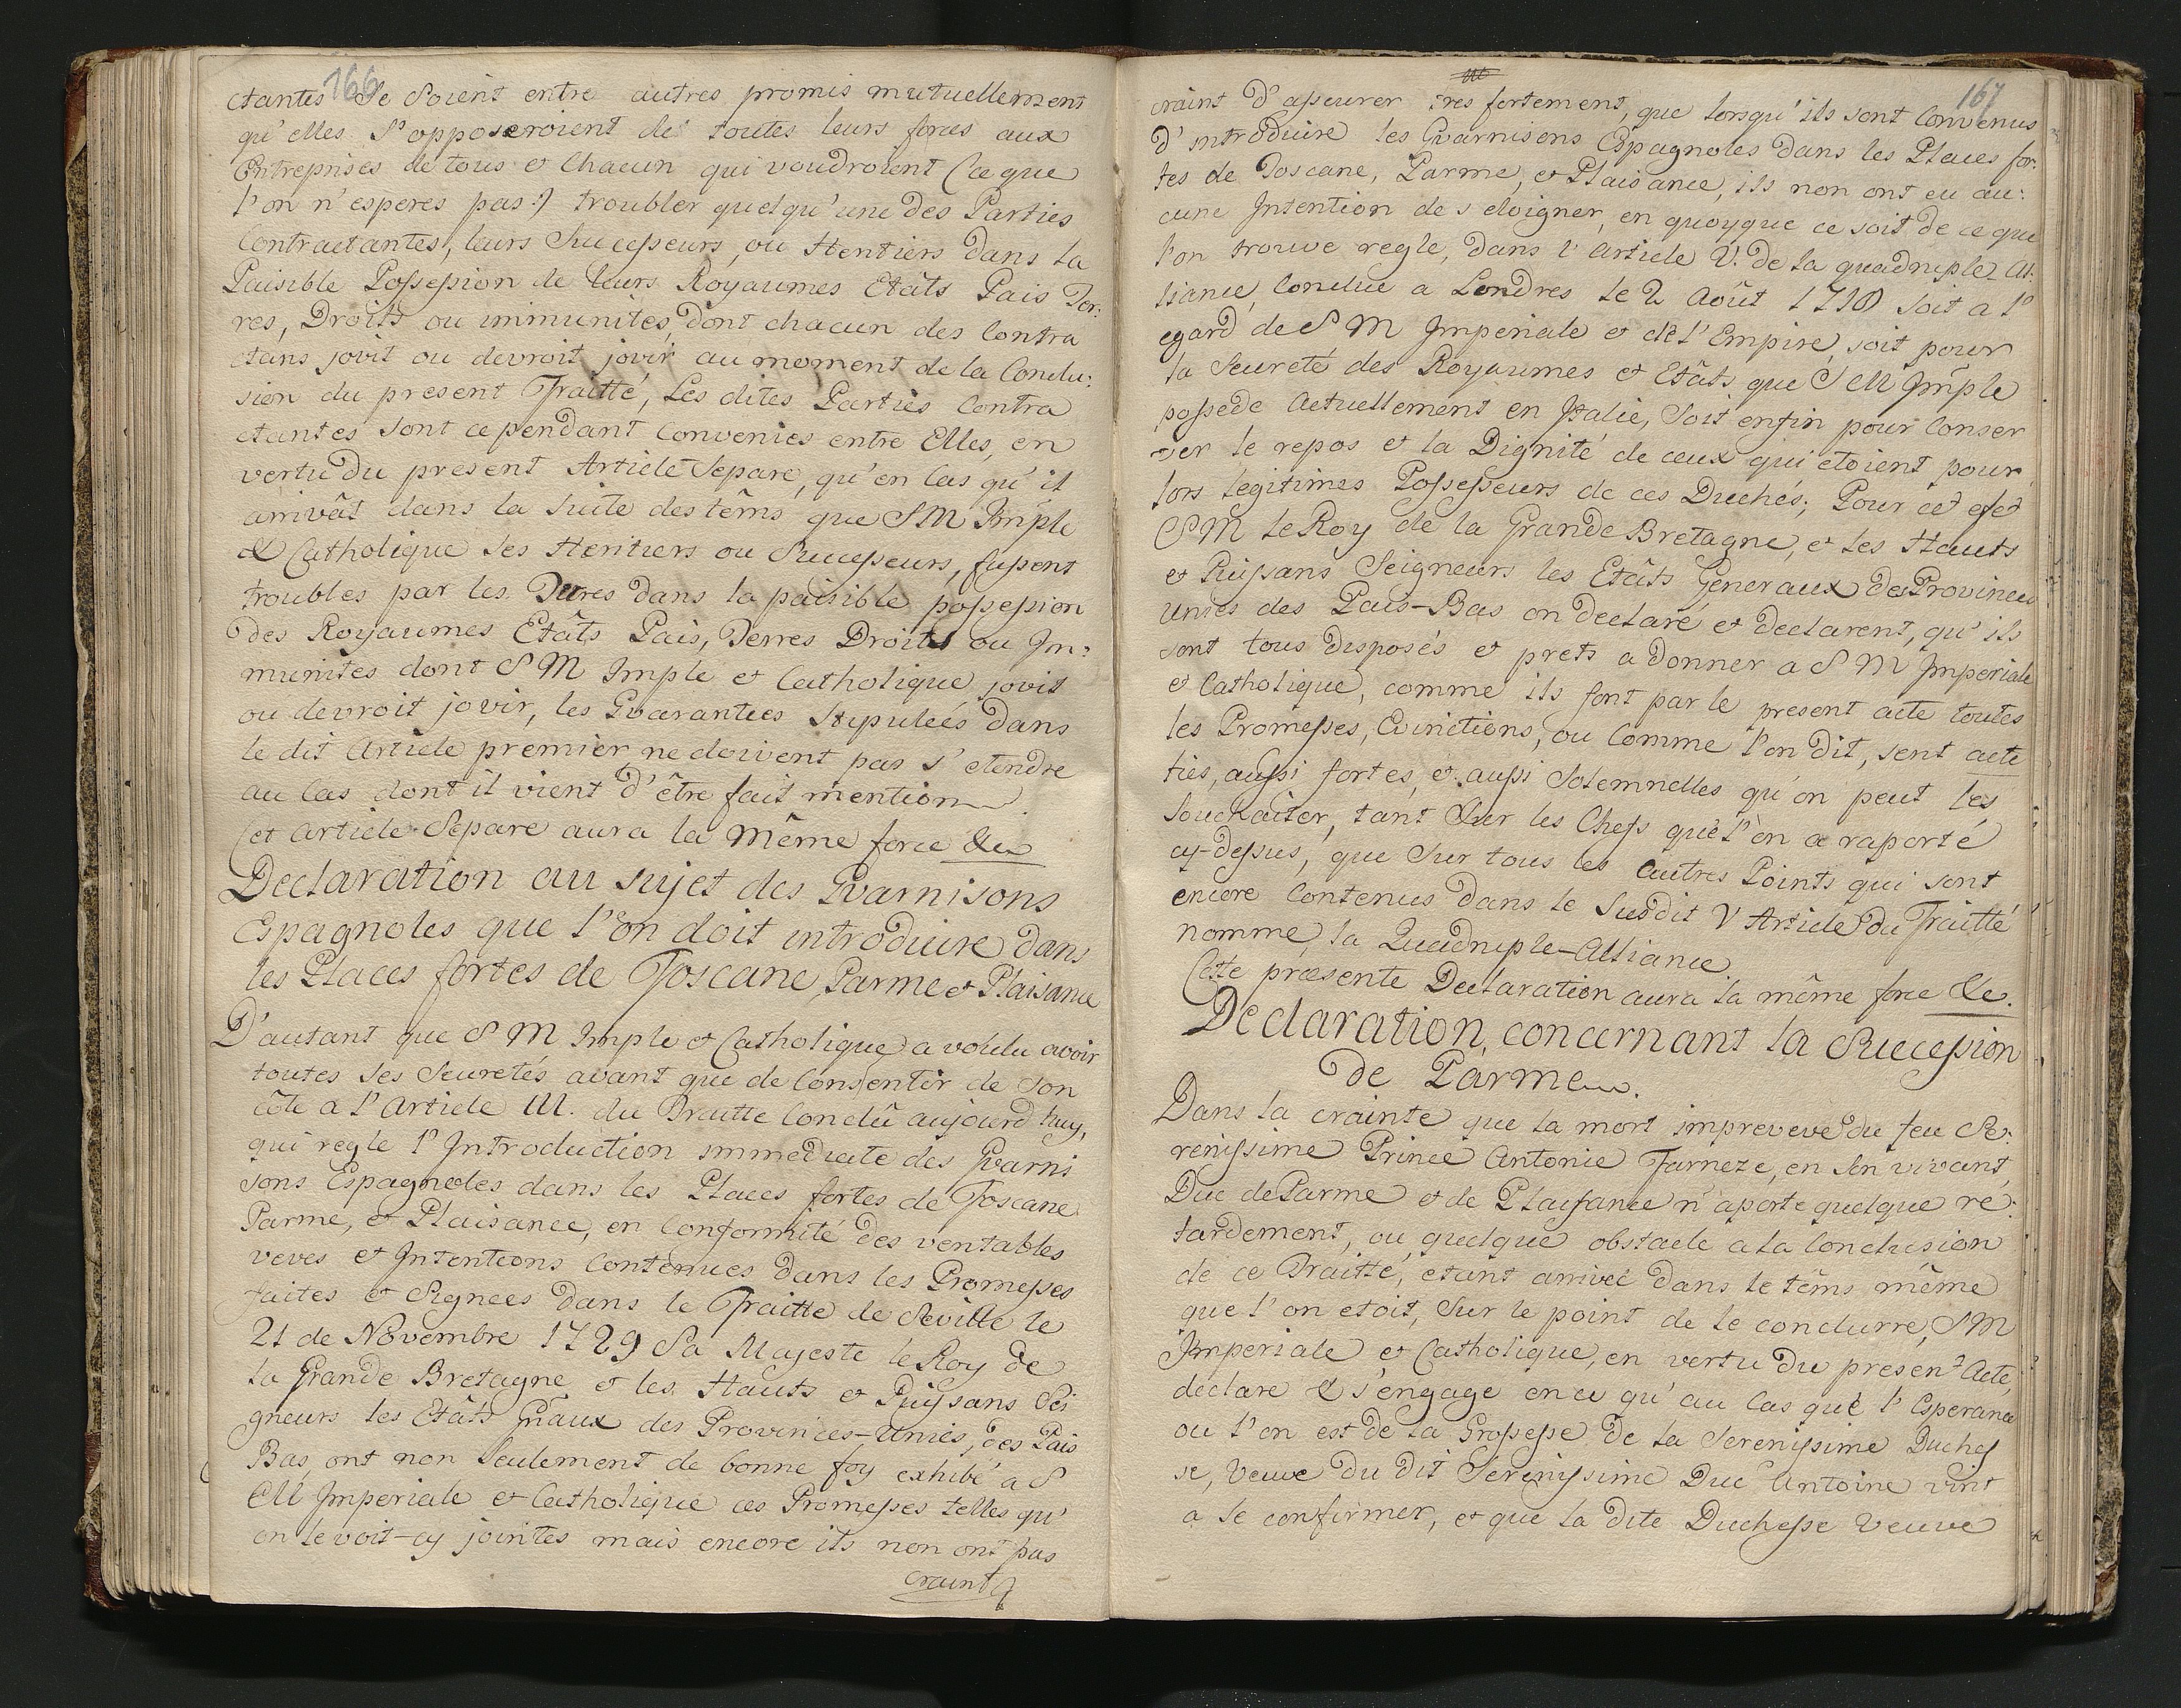 166
ctantes Se Soient entre autres promis mutuellement
qu'elles S'opposeroient de toutes leurs forces aux
Entreprises de tous et Chacun qui voudroient (ce que
l'on n'esperes pas:) troubler quelqu'une des Parties
Contractantes, leurs Successeurs, ou Heritiers dans la
Paisible Possession de leurs Royaumes Etâts Pais Ter:
res, Droits ou immunites, dont chacun des Contra
ctans jovit ou devroit jovir au moment de la Conclu:
sion du present Traitté, Les dites Parties Contra
ctantes sont cependant Convenies entre Elles, en
vertu du present Article Separe, qu'en Cas qu'il
arrivât dans la Suite des têms que S M Imple
& Catholique ses Heritiers ou Successeurs, fussent
troubles par les Turcs dans la paisible possession
des Royaumes Etâts Pais, Terres Droits ou Im:
munites dont S M Imple et Catholique jovit
ou devroit jovir, les Gvaranties Stipuleés dans
le dit Article premier ne doivent pas s'etendre
au Cas dont il vient d'être fait mention
Cet Article Separe aura la Même force &c
Declaration au sujet des Gvarnisons
Espagnoles que l'on doit introduire dans
les Places fortes de Toscane, Parme et Plaisance
D'autant que S M Imple et Catholique a voulu avoir
toutes ses Seuretés avant que de Consentir de Son
côte a l'Article III. du Traitte Conclû aujourd'huy,
qui regle l'Introduction immediate des Gvarni
sons Espagnoles dans les Places fortes de Toscane
Parme, et Plaisance, en Conformité des veritables
veves et Intentions Contenues dans les Promesses
faites et Signees dans le Traitte de Seville le
21 de Novembre 1729 Sa Majeste le Roy de
la Grande Bretagne et les Hauts et Puissans Sei
gneurs les Etâts Gñaux des Provinces-Unies, des Pais
Bas, ont non Seulement de bonne foy exhibé a S
M Imperiale et Catholique ces Promesses telles qu'
on le voit-cy jointes mais encore ils non ont pas
craint
167
craint d'asseurer tres fortement, que lorsqu'ils sont Convenus
d'introduire les Gvarnisons Espagnoles dans les Places for:
tes de Toscane, Parme, et Plaisance, ils non ont eu au:
cune Intention de s eloigner, en quoyque ce soit de ce que
l'on trouve regle, dans l'Article V. de la quadruple Al:
liance, Conclue a Londres le 2 Août 1718 soit a l'
egard de S M Imperiale et de l'Empire, soit pour
la Seureté des Royaumes et Etâts que S M Imple
possede Actuellement en Italie, Soit enfin pour Conser
ver le repos et la Dignité de ceux qui etoient pour
lors legitimes Possesseurs de ces Duchés; Pour cet efet
S M le Roy de la Grande Bretagne, et les Hauts
et Puissans Seigneurs les Etâts Generaux des Provinces
Unies des Pais-Bas on declaré et declarent, qu'ils
sont tous disposés et prets a donner a S M Imperiale
et Catholique, comme ils font par le present acte toutes
les Promesses, Evinctions, ou Comme l'on dit, sent acte
ties, aussi fortes, et aussi Solemnelles qu'on peut les
Souchaiter, tant Sur les Chefs que l'on a raporté
cy-dessus, que Sur tous les autres Points qui sont
encore Contenus dans le Susdit V Article du Traitté
nommé, la Quadruple-Alliance.
Cette præsente Declaration aura la même force &c.
Declaration, concernant la Succession
de Parme.
Dans la crainte que la mort impreveve du feu Se:
renissime Prince Antonie Farneze, en Son vivant,
Duc de Parme et de Plaisance n'aporte quelque re:
tardement, ou quelque obstacle a la Conclusion
de ce Traitté, etant arriveé dans le têms même
que l'on etoit, Sur le point de le conclurre, S M
Imperiale et Catholique, en vertu du present Acte,
declare & s'engage en ce qu'au Cas que l'Esperance
ou l'on est de la Grossesse de la Serenissime Duches
se, Veuve du dit Serenissime Duc Antoine vint
a se confirmer, et que la dite Duchesse Veuve